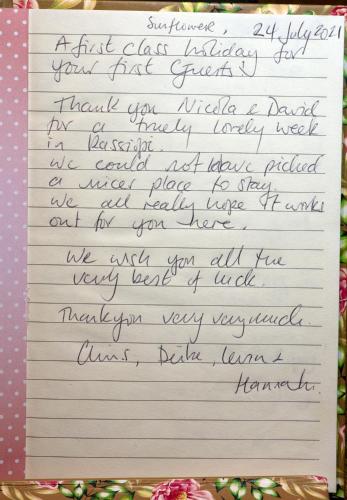 Sunflower, 24 July 2021
A first class holiday for
your first Guests!
Thank you Nicola & David
for a truely lovely week
in Kassiopi.
We could not have picked
a nicer place to stay.
We all really hope it works
out for you here.
We wish you all the
very best of luck.
Thankyou very very much.
Chris,
Hannah.